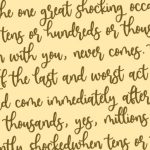 he one great shocking occa
tens or hundreds or thous
n with you, never comes."
f the last and worst act
d come immediately after
thousands, yes, millions
tly shockedwhen tens or t